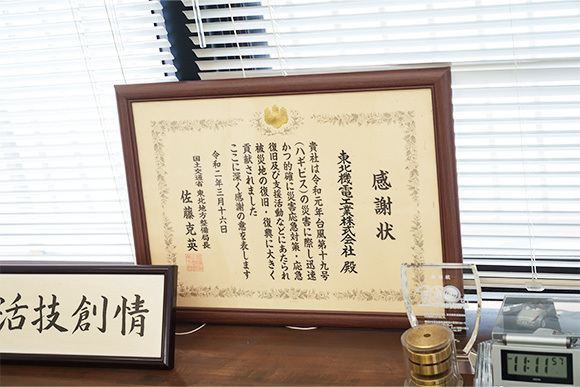 感謝状
東北機電工業株式会社 殿
貴社は令和元年台風第十九号
（ハギビス）の災害に際し迅速
かつ的確に災害応急対策・応急
復旧及び支援活動などにあたられ
被災地の復旧・復興に大きく
貢献されました
ここに深く感謝の意を表します
令和二年三月十六日
国土交通省 東北地方整備局長
佐藤克英
活技創情
11:11 57